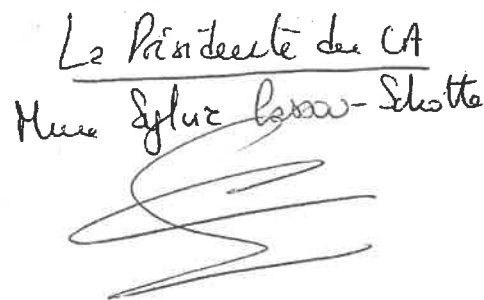 La Présidente du CA
Mme Sylvie Cassou-Schotte